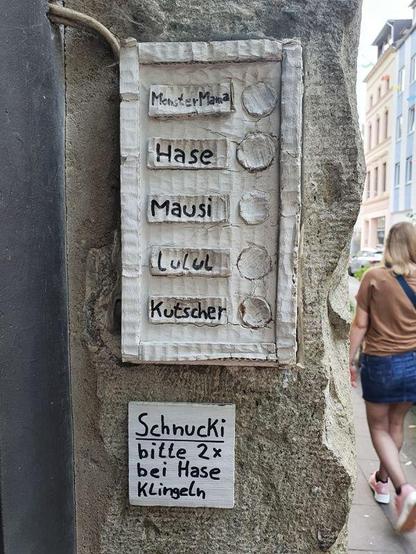 MonsterMama
Hase
Mausi
Lulul
Kutscher
Schnucki
bitte 2x
bei Hase
Klingeln